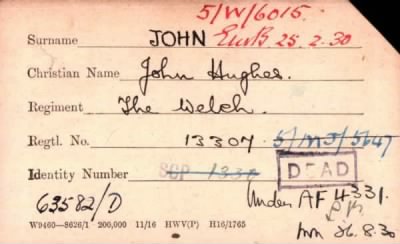 5/W/6015.
Surname JOHN EurB 25.2.30
Christian Name John Hughes.
Regiment The Welch.
Regtl. No. 13307 5/MJ/5647
Identity Number SGP 1338 DEAD
63582/D Under AF 4331.
W9460—8626/1 200,000 11/16 HWV(P) H16/1765
26.8.30